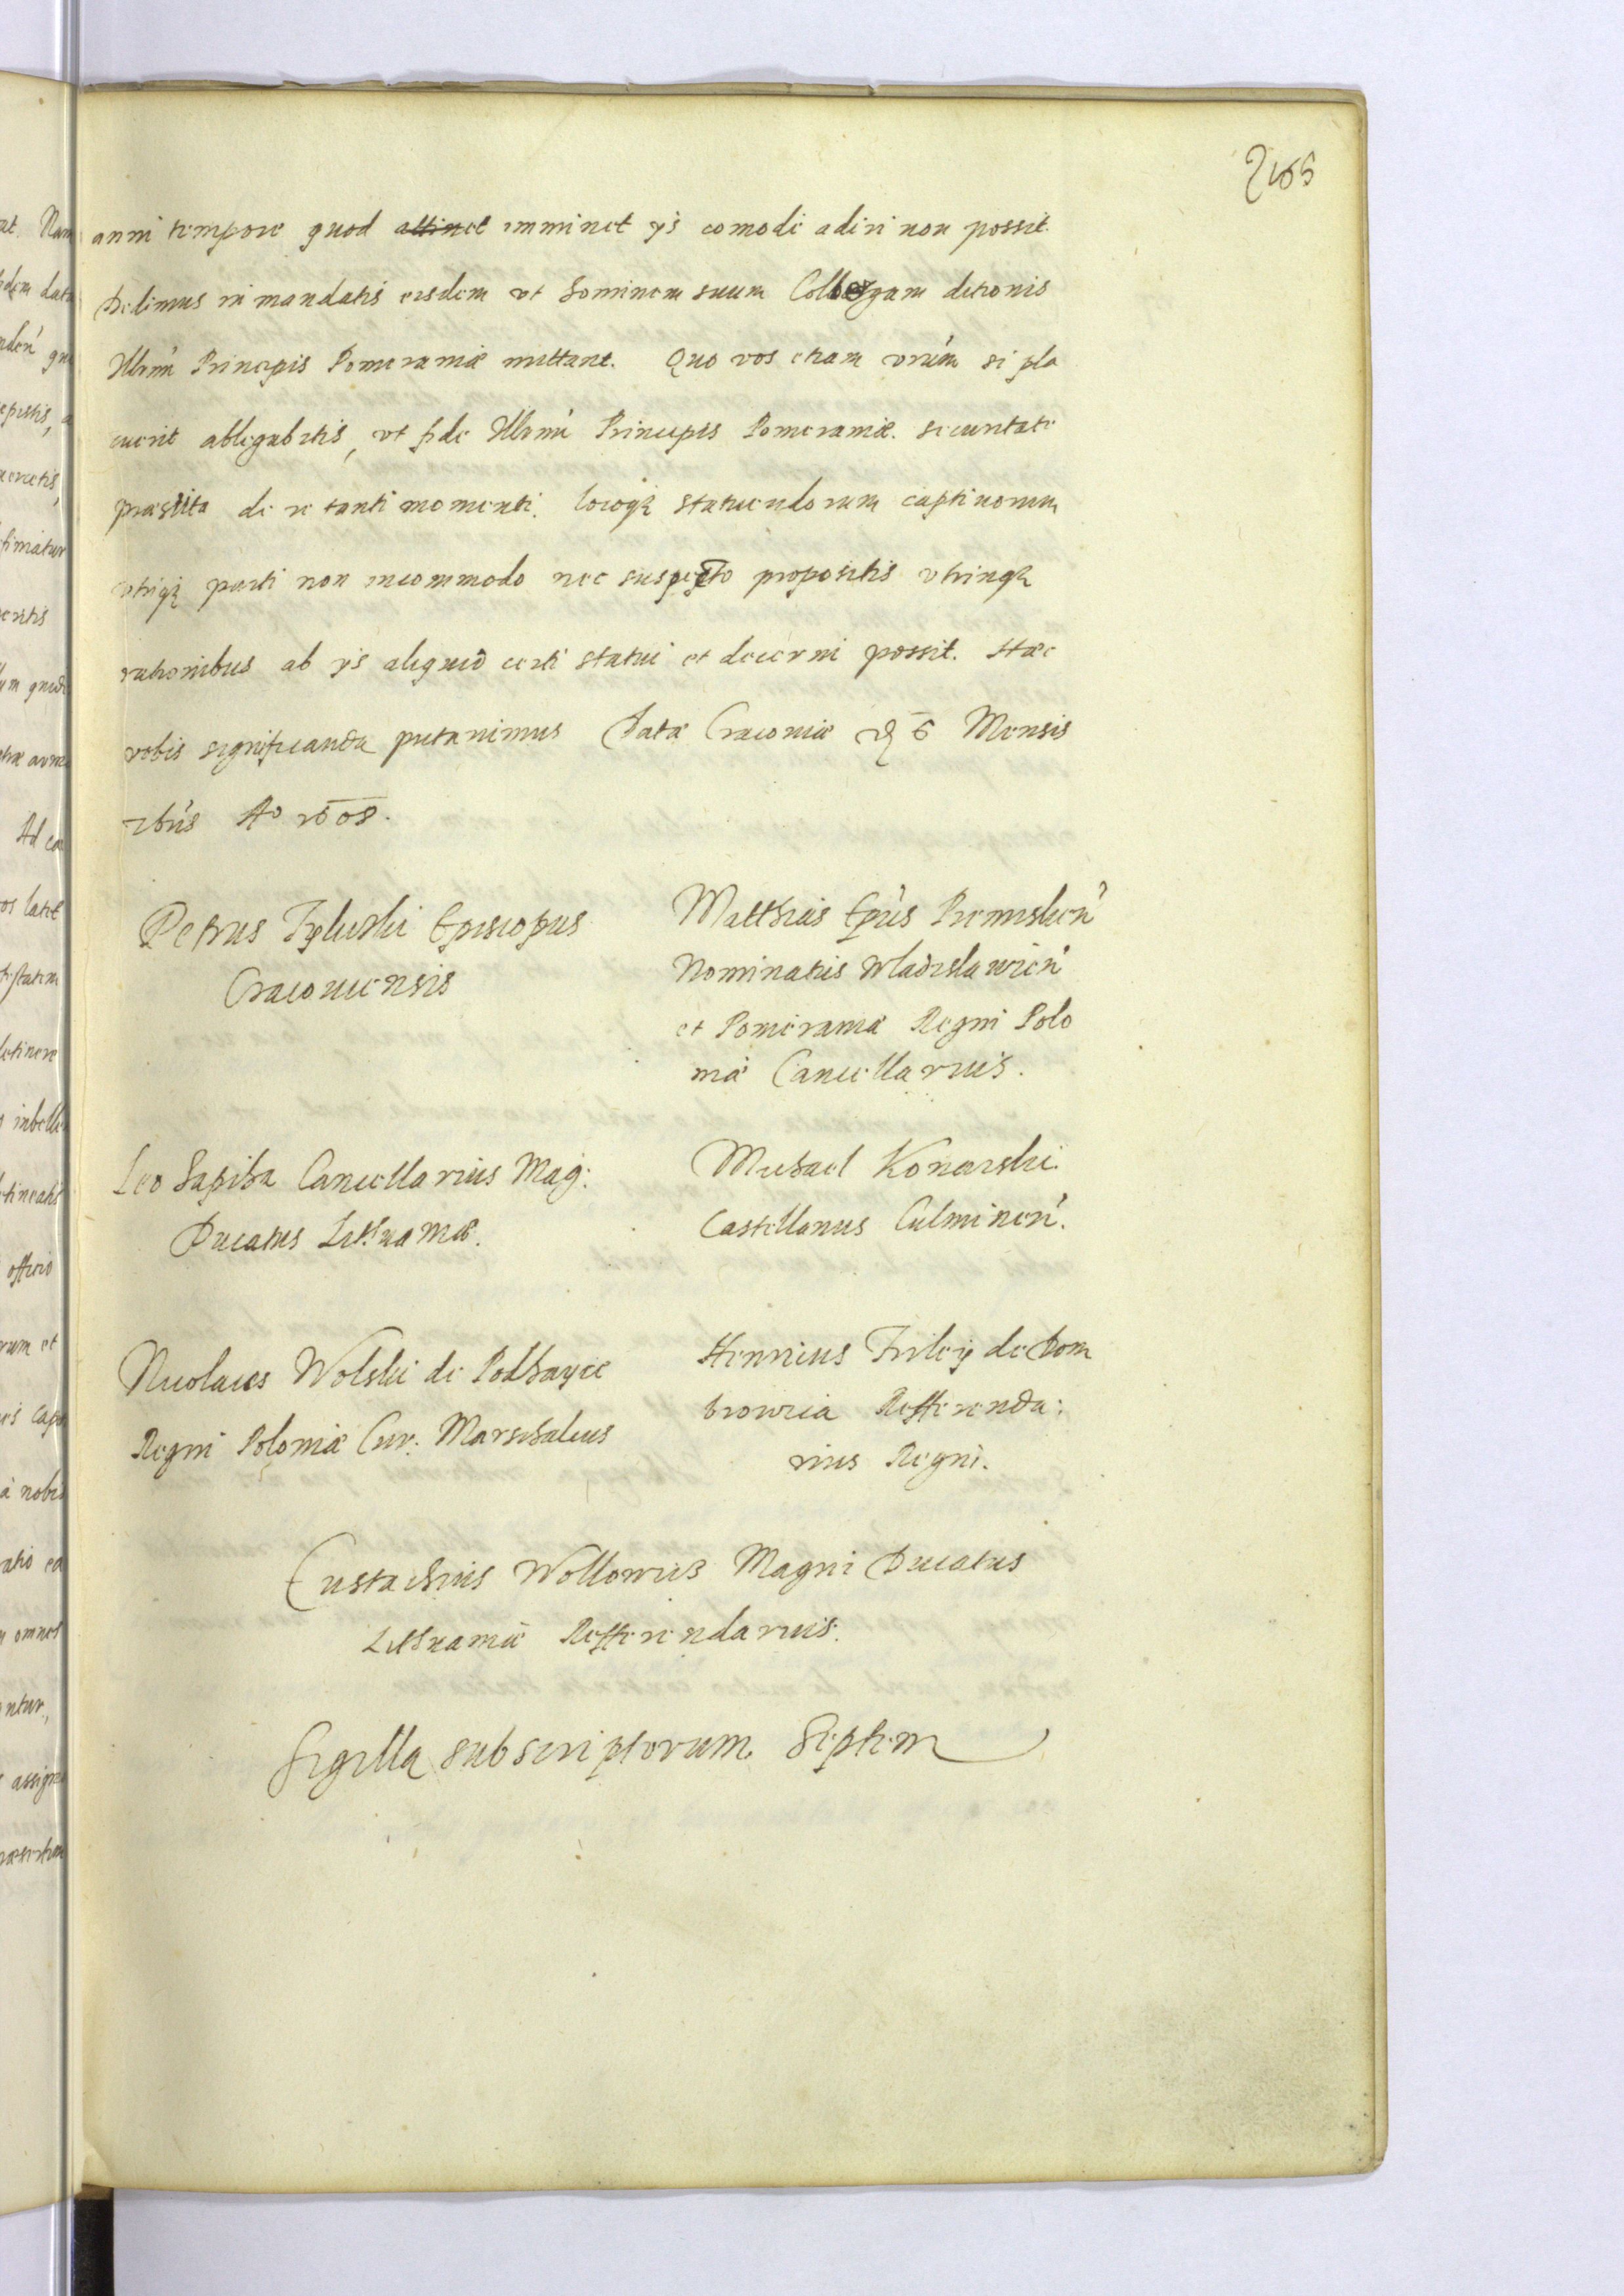 anni tempore quod attinet imminet ijs comodè adiri non possit.
Dedimus in mandatis eisdem vt hominem suum Collbergam ditionis
Illrmi Principis Pomeraniæ mittant. Quo vos etiam vrũm si pla
cuerit ablegabitis, vt fide Illrmi Principis Pomeraniæ securitate
præstita de re tanti momenti, locoq; statuendorum captiuorum
vtriq; parti non incommodo nec suspecto propositis vtrinq;
rationibus ab ijs aliquid certi statui et decerni possit. Hæc
vobis significanda putauimus Datæ Cracouiæ 6 Mensis
Ao 1608.
Petrus Tyliczki Episcopus
Cracouiensis
Matthias Epũs Premislien
Nominatus Wladislawien
et Pomeraniæ Regni Polo
niæ Cancellarius.
Leo Sapiha Cancellarius Mag:
Ducatus Lithuaniæ.
Michael Konarski
Castellanus Culminen.
Nicolaus Wolski de Podhayce
Regni Poloniæ Cur: Marschalcus
Henricus Firley de Dom
browica Refferenda:
rius Regni.
Eustachius Wollowicz Magni Ducatus
Lithuaniæ Refferendarius.
Sigilla subscriptorum Septem